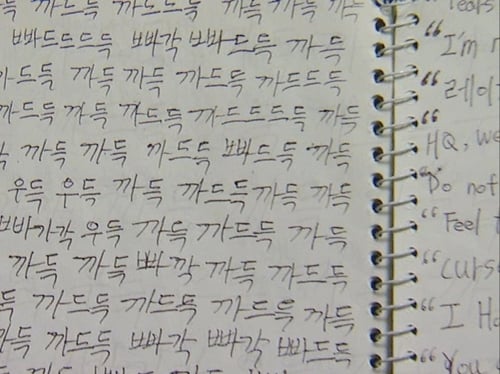 득 까드득 까드드득 까득 까득 까득
빠드드드득 빠각 빠빠드득 까득
드득 까득 까득 까드득 까드드득
까드득 까득 까드득 까드드드득 까득
까득 까득 까드득 빠드득 까득
우득 우득 까득 까드득 까득 까득
빠바가각 우득 까득 까드득 까득
까득 까득 빠깍 까득 까드득
득 까드득 까드득 까드득 까득
득 까드득 빠각 빠각 빠드득
Tears
"I'm
"레이
"
HQ, we
"Do not
"Feel
"curs
"I Ha
"You